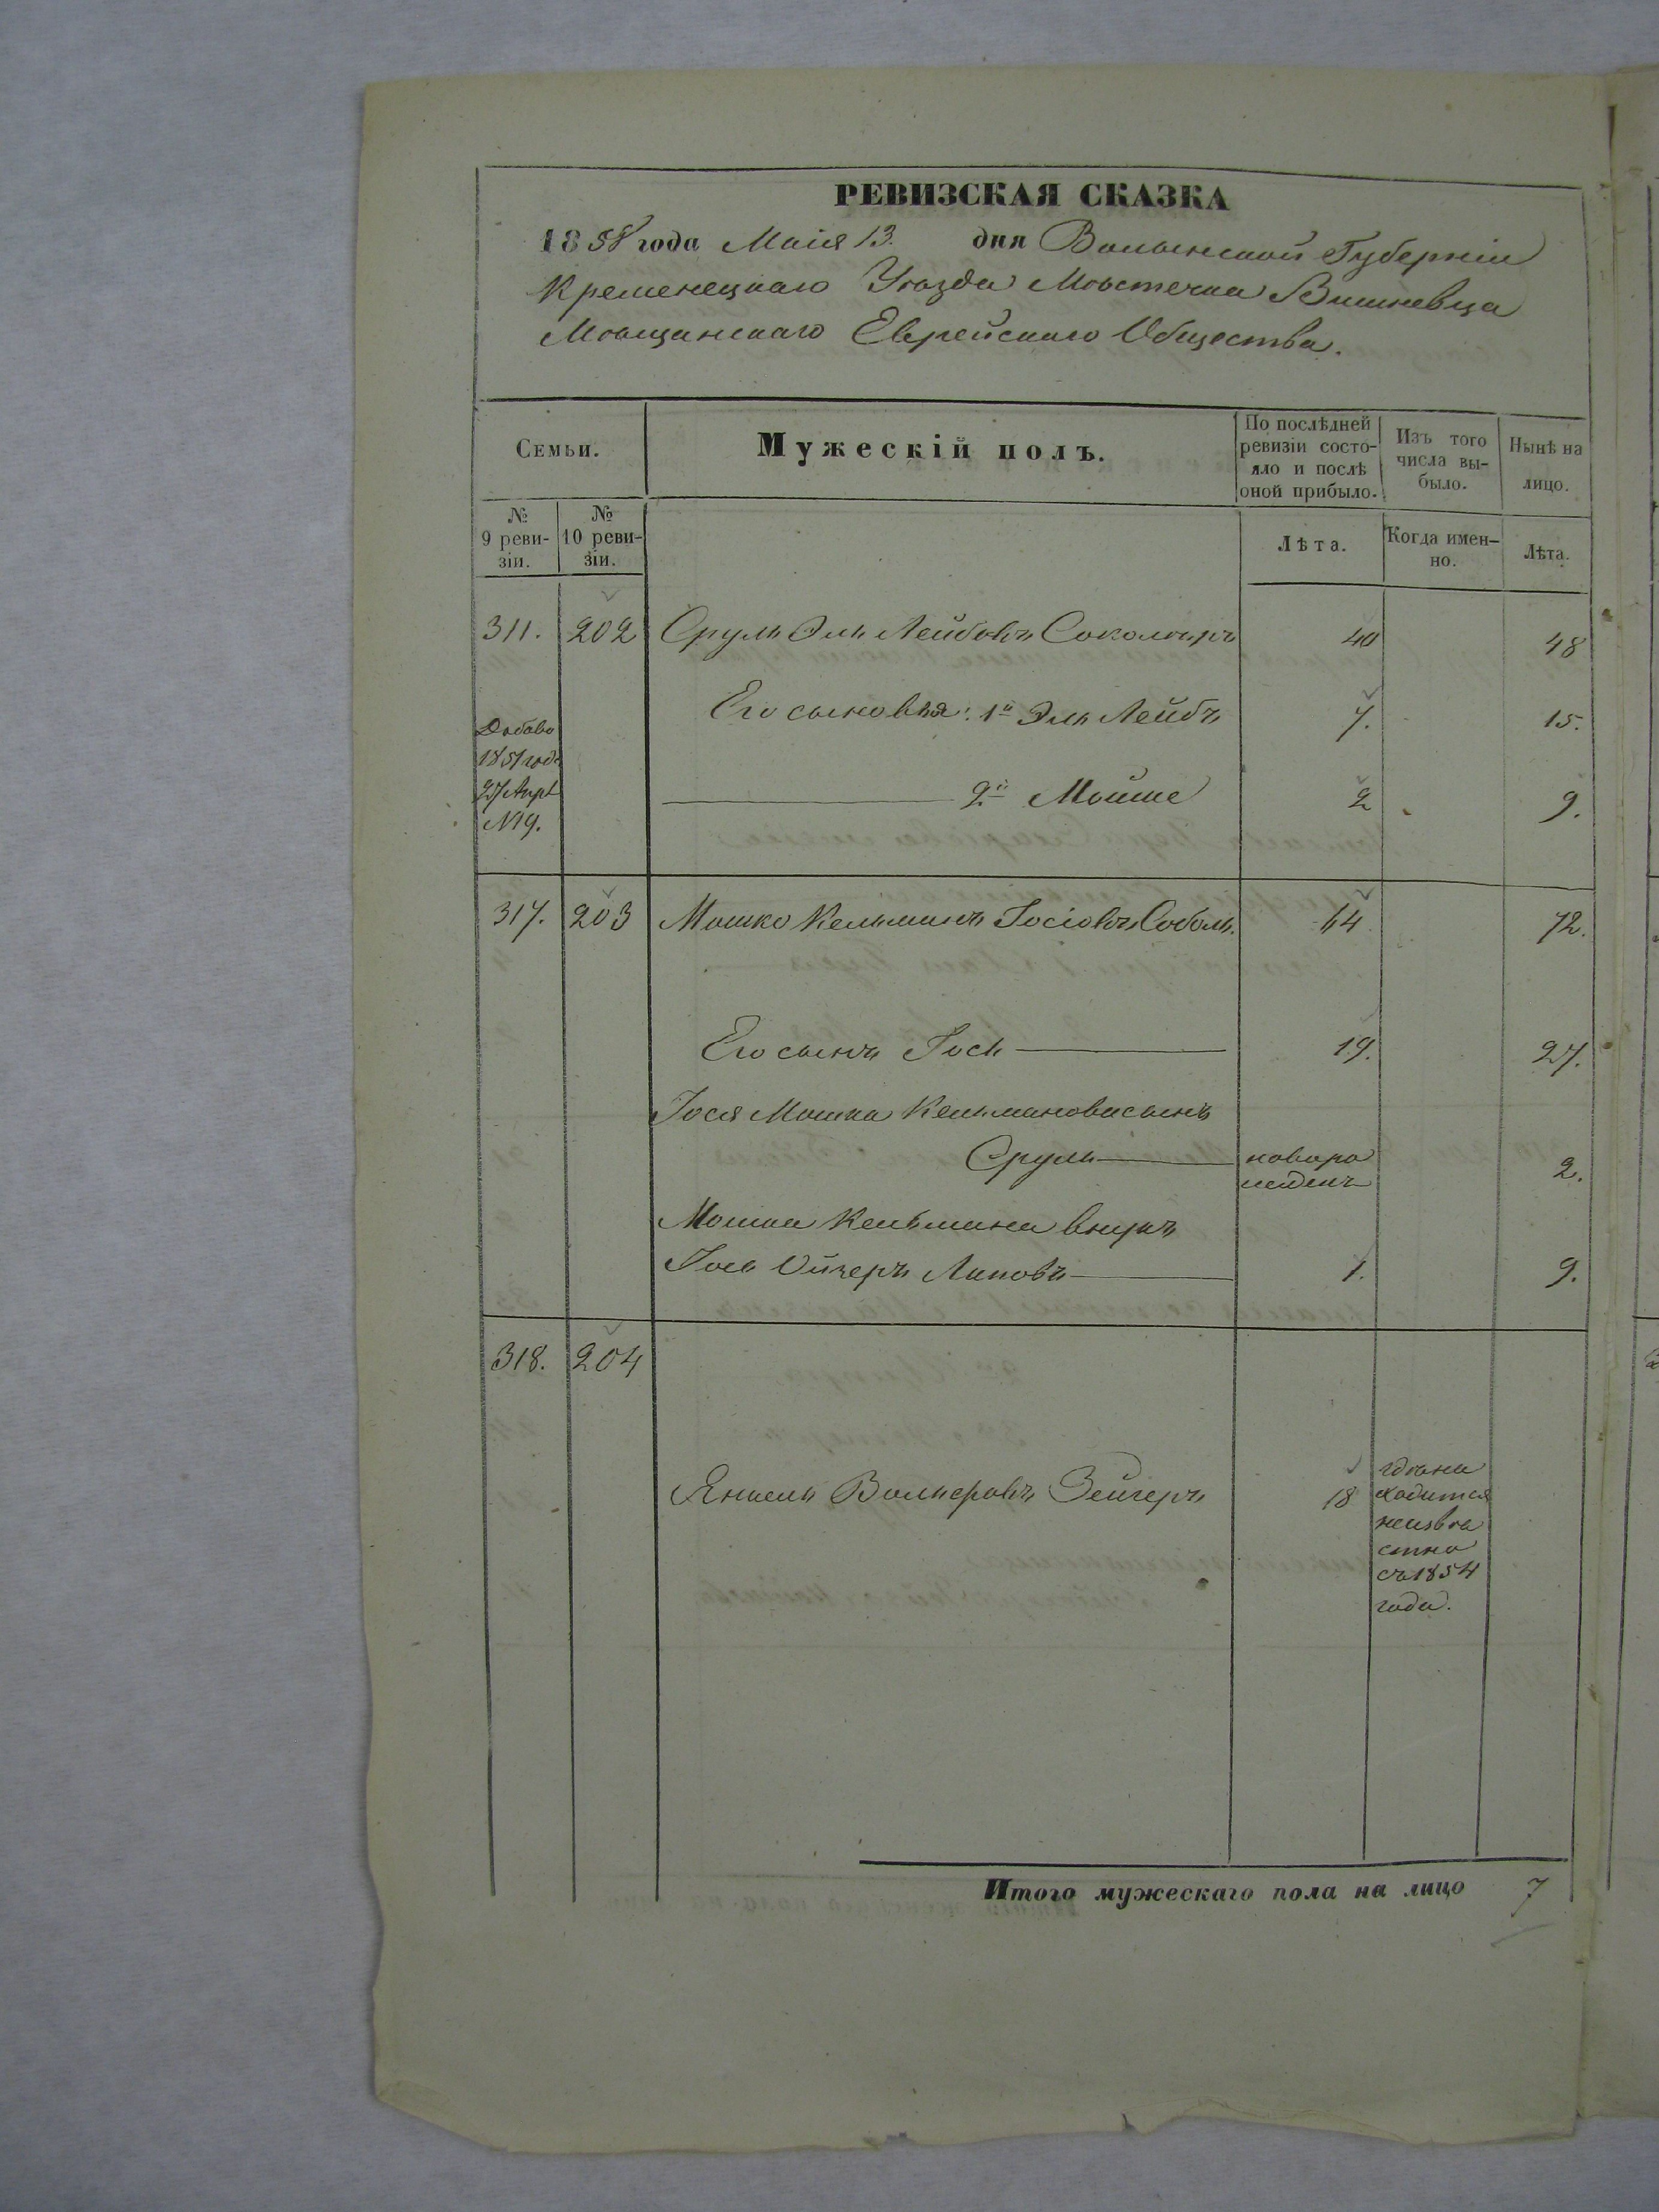 РЕВИЗСКАЯ СКАЗКА
1858 года Маія 13. дня Волынской Губерніи
Кременецкаго Уѣзда Мѣстечка Вишневца
Мѣщанскаго Еврейскаго Общества.
Семьи.
Мужескій полъ.
По послѣдней ревизіи состояло и послѣ оной прибыло.
Изъ того числа выбыло.
Нынѣ на лицо.
№ 9 ревизіи.
№ 10 ревизіи.
Лѣта.
Когда именно.
Лѣта.
311. 202 Сруль Эль Лейбовъ 40 48
Его сыновья: 1й Эль Лейбъ 7. 15.
Добаво
1851 года
Апрл
№19.
2й Мойше 2 9.
317. 203 Мошко Кельманъ Іосіовъ Соболь. 64 72.
Его сынъ Іось 19. 27.
Іося Мошка Кельманова сынъ
Сруль новорожденъ 2.
Мошка Кельмана внукъ
Іось Ойзеръ Липовъ 1. 9.
318. 204
Янкель Волькеровъ Зейгеръ 18
гдѣ на
ходится
неизвѣ
стно
съ 1854
года.
Итого мужескаго пола на лицо 7